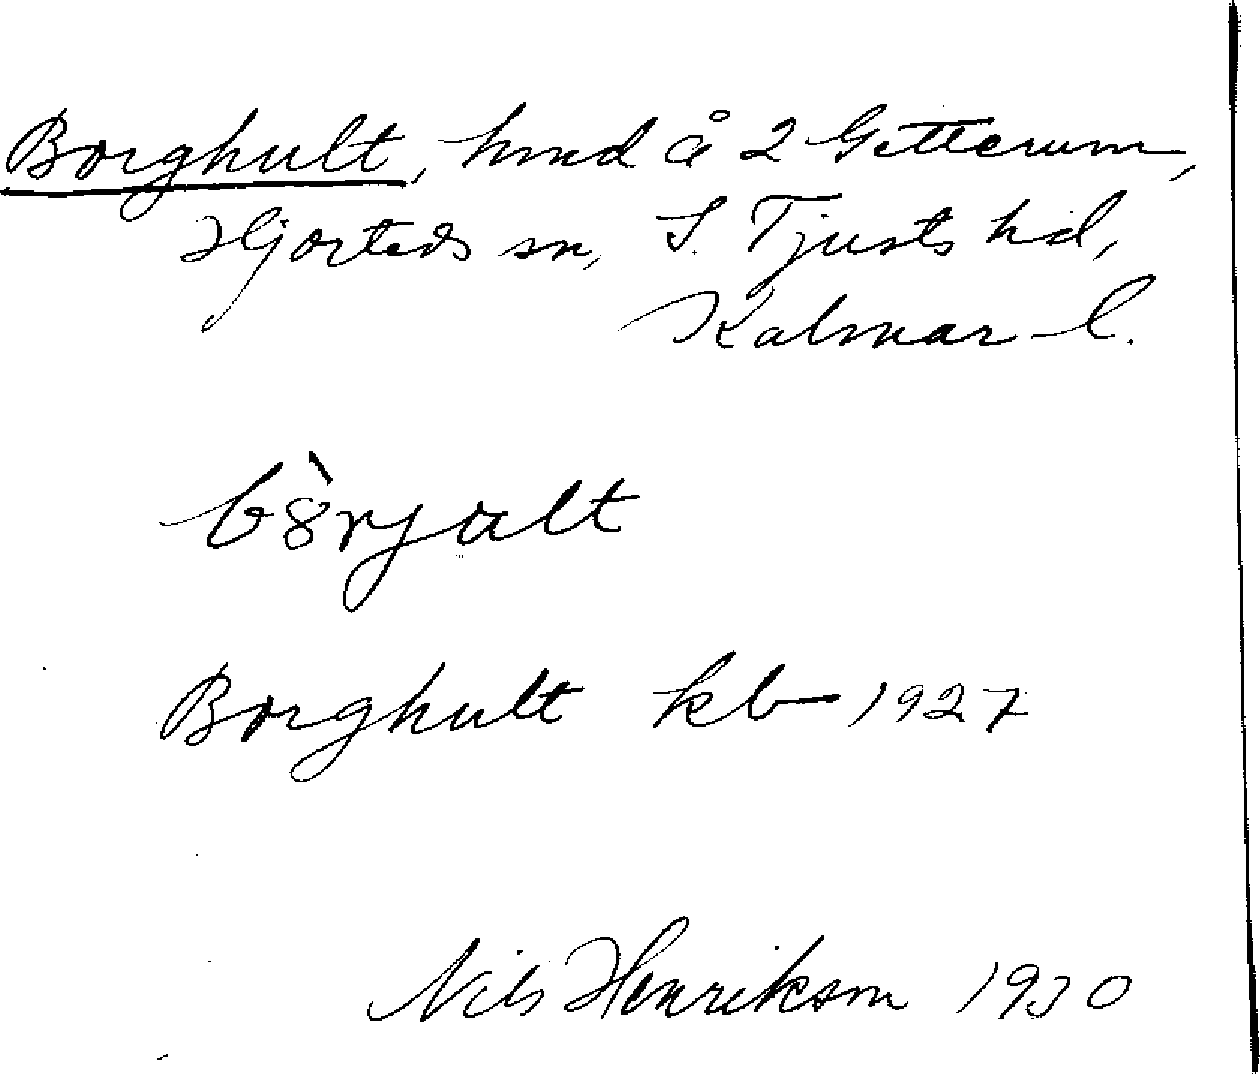 Borghult, hmd å 2 Getterum,
Hjorteds sn, S. Tjusts hd,
Kalmar l.
bò̈rjalt
Borghult kb 1927
Nils Henrikson 1930